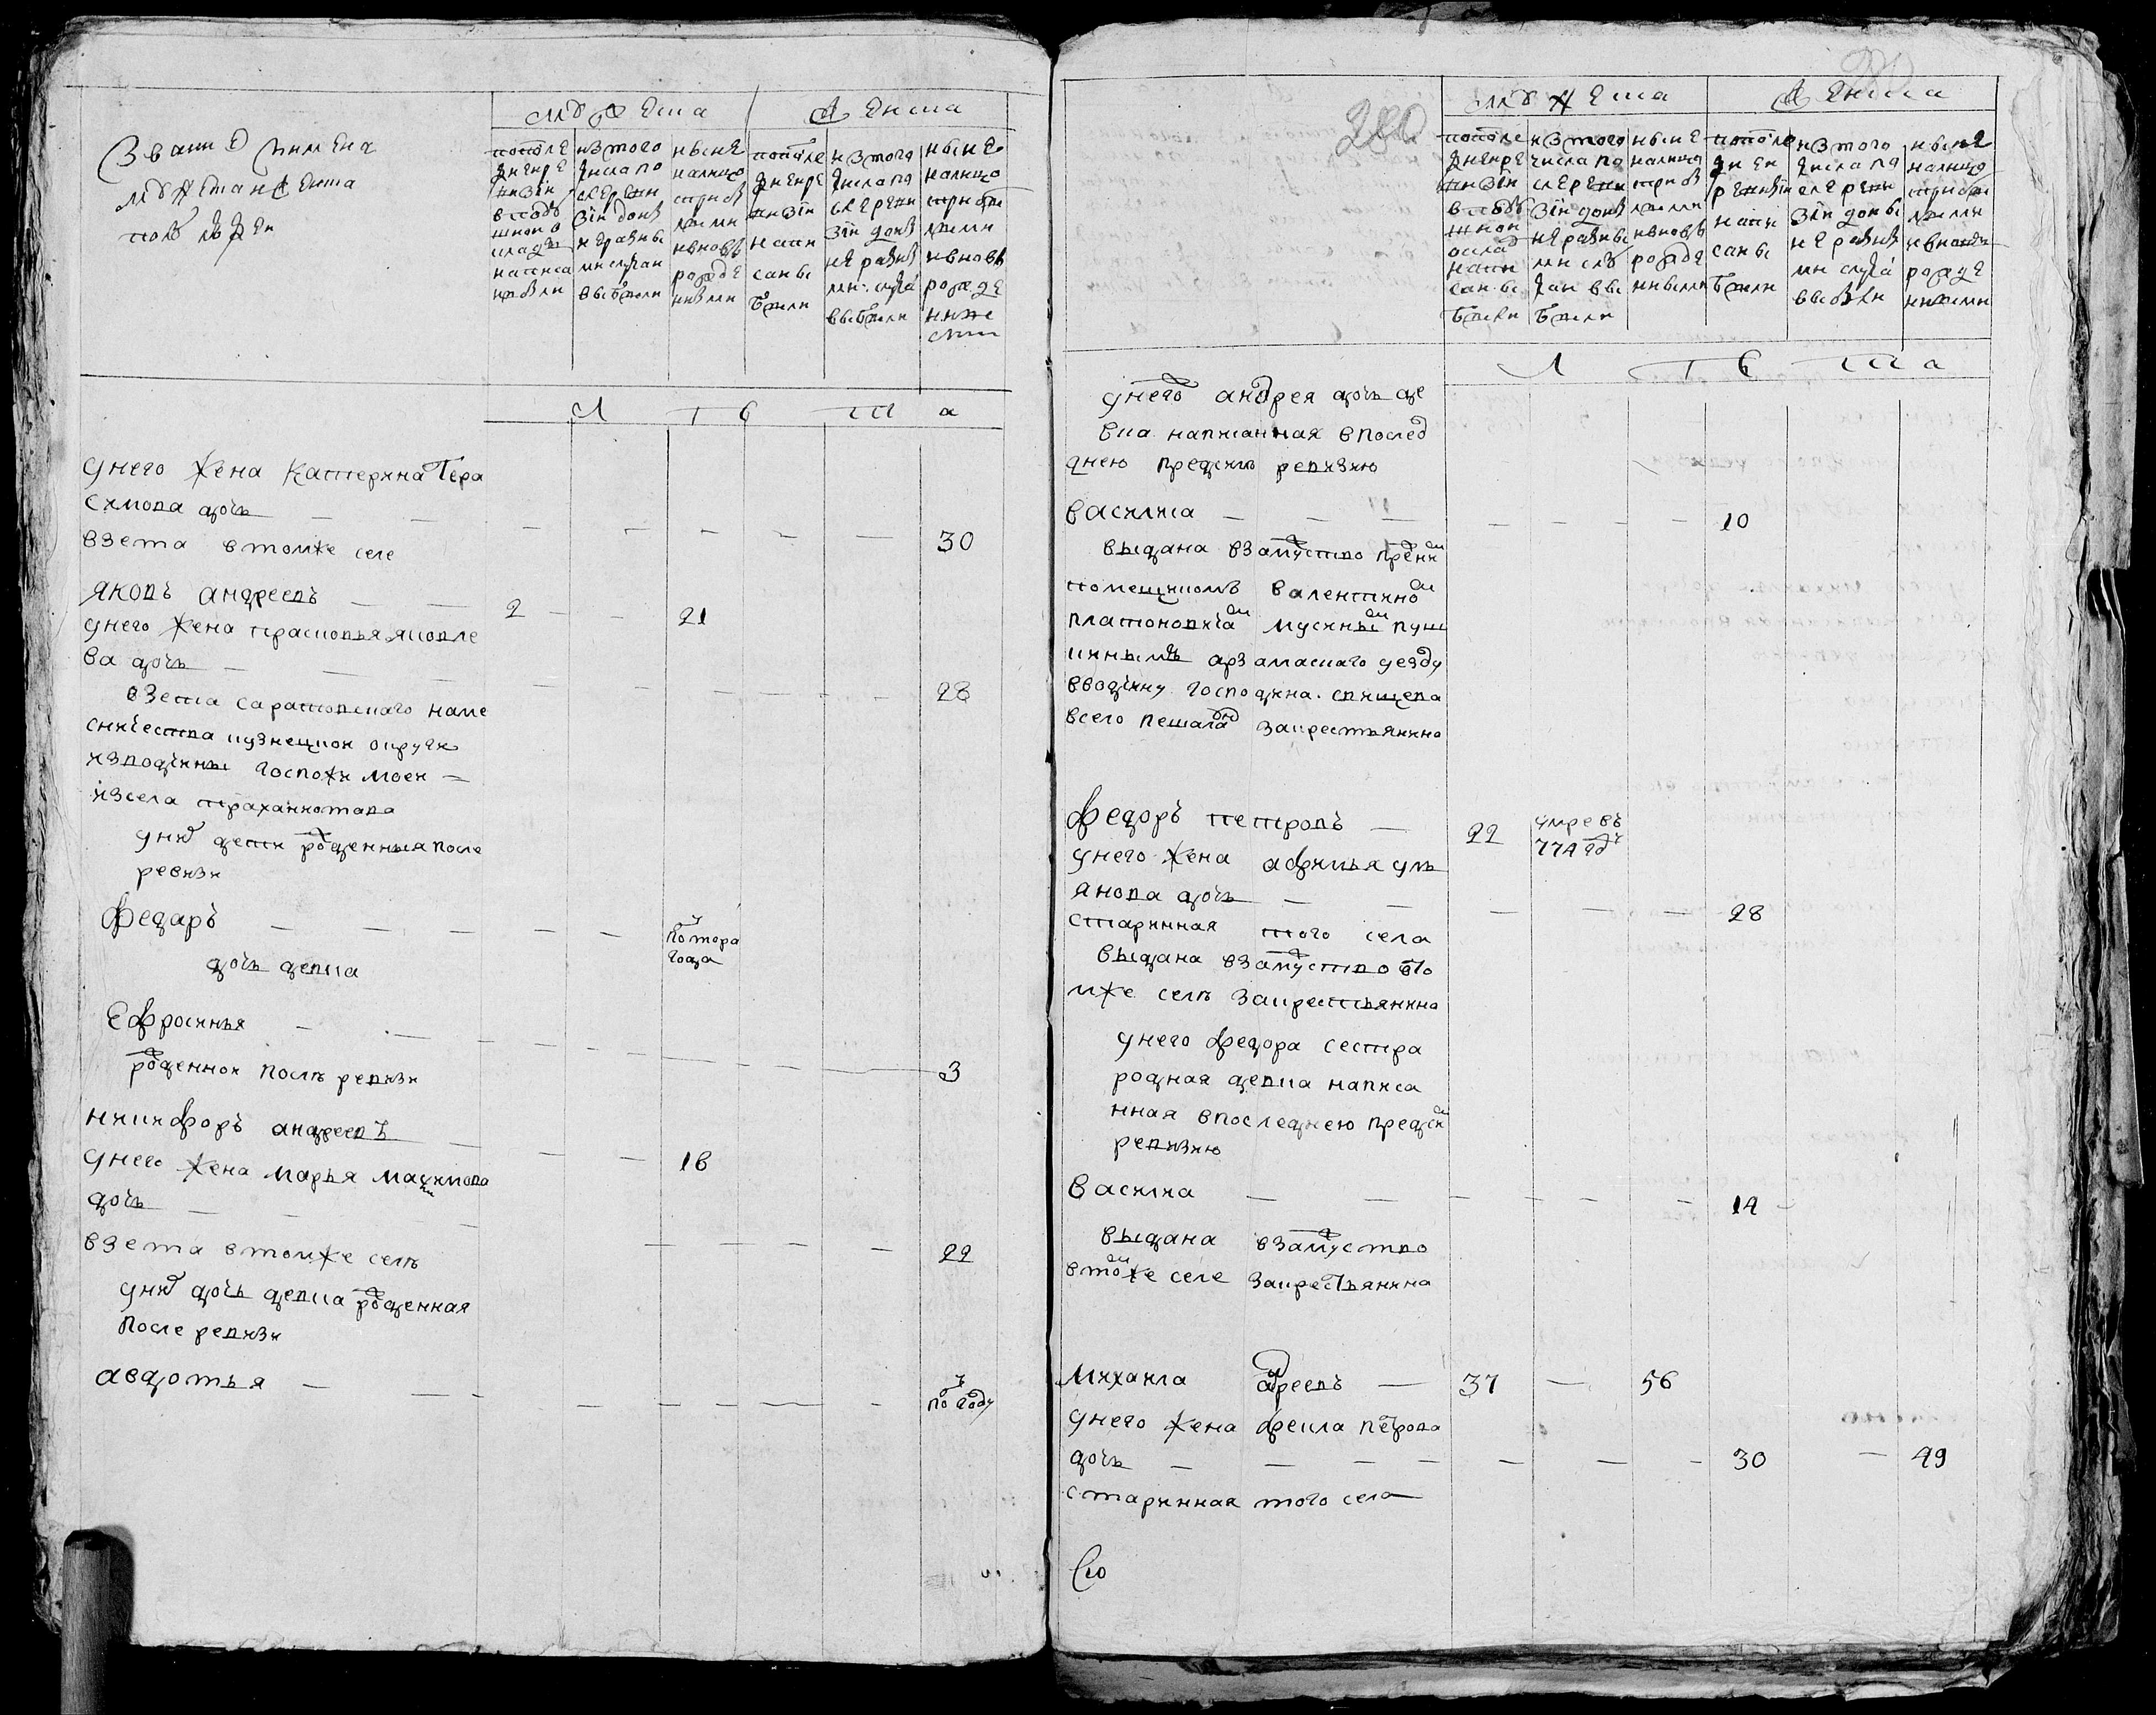 Звание и имена
мужеска и женска
полу людей
мужеска
женска
по последней ревизии в подушном окладе написано было
из того числа после ревизии до ныне разными случаи выбыли
ныне налицо с прибылыми и вновь рожденными
по последней ревизии написано было
из того числа после ревизии до ныне разными случаи выбыли
ныне налицо с прибылыми и вновь рожденными
л ѣ т а
у него жена Катерина Гера
симова дочь — — — — — — — 30
взета в томже селе
яковъ андреевъ — — 2 — 21
у него жена прасковья яковле
ва дочь — — — — — — — 28
взета саратовскаго наме
сничества кузнецкои округи
извотчины госпожи моеи
изсела трахани́отава
у них дети рожденныя после
ревизи
федаръ — — — — — полтора года
дочь девка
Ефросинья — — — — — — — 3
рожденнои послѣ ревизи
никифоръ андреевъ — — — 16
у него жена марья максимова
дочь — — — — — — — 22
взета в томже селѣ
у них дочь девка рожденная
после ревизи
авдотья — — — — — — — полгоду
280
мужеска
женска
по последней ревизии в подушном окладе написано было
из того числа после ревизии до ныне разными случаи выбыли
ныне налицо с прибылыми и вновь рожденными
по последней ревизии написано было
из того числа после ревизии до ныне разными случаи выбыли
ныне налицо с прибылыми и вновь рожденными
л ѣ т а
у него андрея дочь де
вка написанная в послед
днею предъидущию ревизию
василиса — — — — — — — 10
выдана в замужство прежним
помещиком валентином
платоновичам мусиным пуш
киным арзамаскаго уезду
в водчину господина спищева
всело пешалад за крестьянина
федоръ петровъ — 22 умре въ 774 годъ
у него жена афимья уль
янова дочь — — — — — 28
старинная того села
выдана в замужство в то
мже селѣ за крестьянина
у него федора сестра
родная девка написа
нная в последнею предъид
ревизию
василиса — — — — — — 14
выдана в замужство
в томже селе за крестьянина
михаила андреевъ — 37 — 56
у него жена фекла петрова
дочь — — — — — — — 30 — 49
старинная того села
Сю